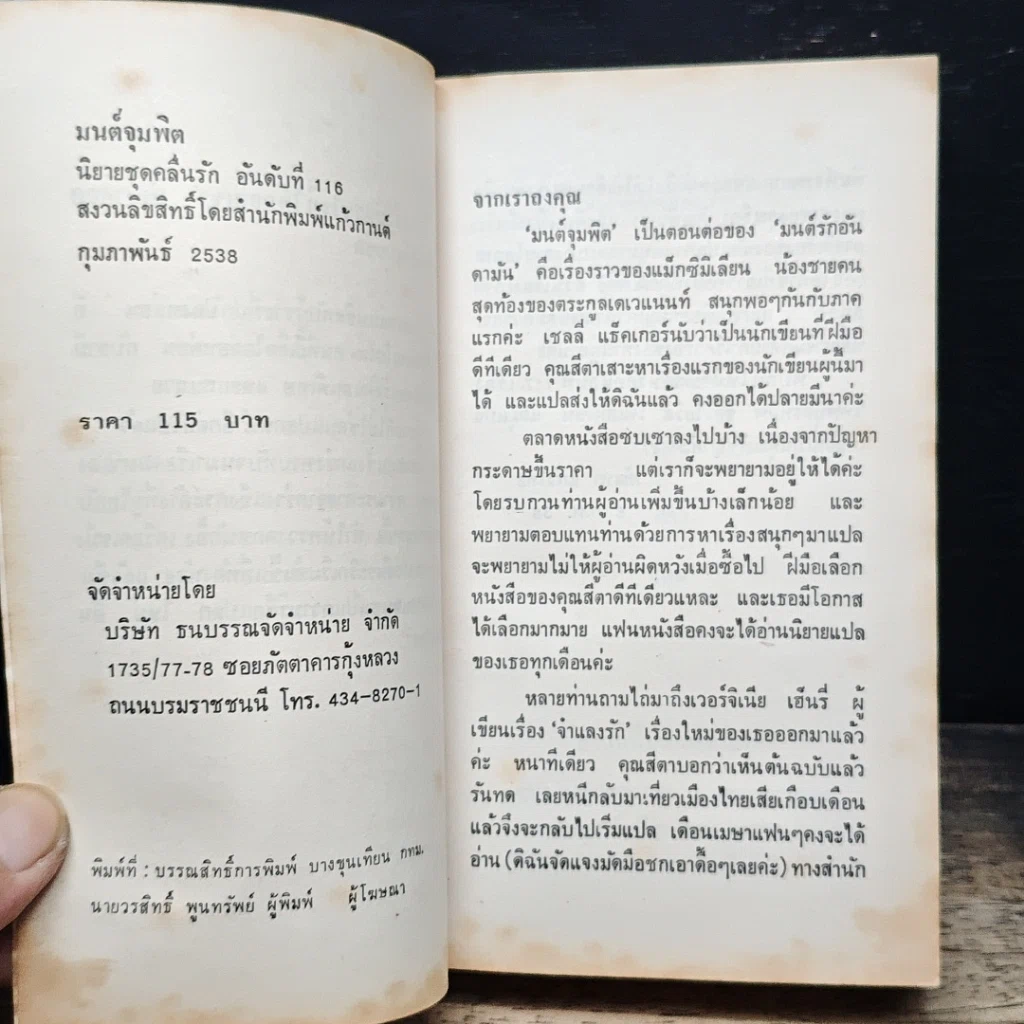 มนต์จุมพิต
นิยายชุดคลื่นรัก อันดับที่ 116
สงวนลิขสิทธิ์โดยสำนักพิมพ์แก้วกานต์
กุมภาพันธ์ 2538
ราคา 115 บาท
จัดจำหน่ายโดย
บริษัท ธนบรรณจัดจำหน่าย จำกัด
1735/77-78 ซอยภัตตาคารกุ้งหลวง
ถนนบรมราชชนนี โทร. 434-8270-1
พิมพ์ที่ : บรรณสิทธิ์การพิมพ์ บางขุนเทียน กทม.
นายวรสิทธิ์ พูนทรัพย์ ผู้พิมพ์ ผู้โฆษณา
จากเราถงคุณ
'มนต์จุมพิต' เป็นตอนต่อของ 'มนต์รักอัน
ดามัน' คือเรื่องราวของแม็กซิมิเลียน น้องชายคน
สุดท้องของตระกูลเดเวแนนท์ สนุกพอๆกันกับภาค
แรกค่ะ เชลลี่ แธ็คเกอร์นับว่าเป็นนักเขียนที่ฝีมือ
ดีทีเดียว คุณสีตาเสาะหาเรื่องแรกของนักเขียนผู้นี้มา
ได้ และแปลส่งให้ดิฉันแล้ว คงออกได้ปลายมีนาค่ะ
ตลาดหนังสือซบเซาลงไปบ้าง เนื่องจากปัญหา
กระดาษขึ้นราคา แต่เราก็จะพยายามอยู่ให้ได้ค่ะ
โดยรบกวนท่านผู้อ่านเพิ่มขึ้นบ้างเล็กน้อย และ
พยายามตอบแทนท่านด้วยการหาเรื่องสนุกๆมาแปล
จะพยายามไม่ให้ผู้อ่านผิดหวังเมื่อซื้อไป ฝีมือเลือก
หนังสือของคุณสีตาดีทีเดียวแหละ และเธอมีโอกาส
ได้เลือกมากมาย แฟนหนังสือคงจะได้อ่านนิยายแปล
ของเธอทุกเดือนค่ะ
หลายท่านถามไถ่มาถึงเวอร์จิเนีย เฮ็นรี่ ผู้
เขียนเรื่อง 'จำแลงรัก' เรื่องใหม่ของเธอออกมาแล้ว
ค่ะ หนาทีเดียว คุณสีตาบอกว่าเห็นต้นฉบับแล้ว
รันทด เลยหนีกลับมาเที่ยวเมืองไทยเสียเกือบเดือน
แล้วจึงจะกลับไปเริ่มแปล เดือนเมษาแฟนๆคงจะได้
อ่าน (ดิฉันจัดแจงมัดมือชกเอาดื้อๆเลยค่ะ) ทางสำนัก